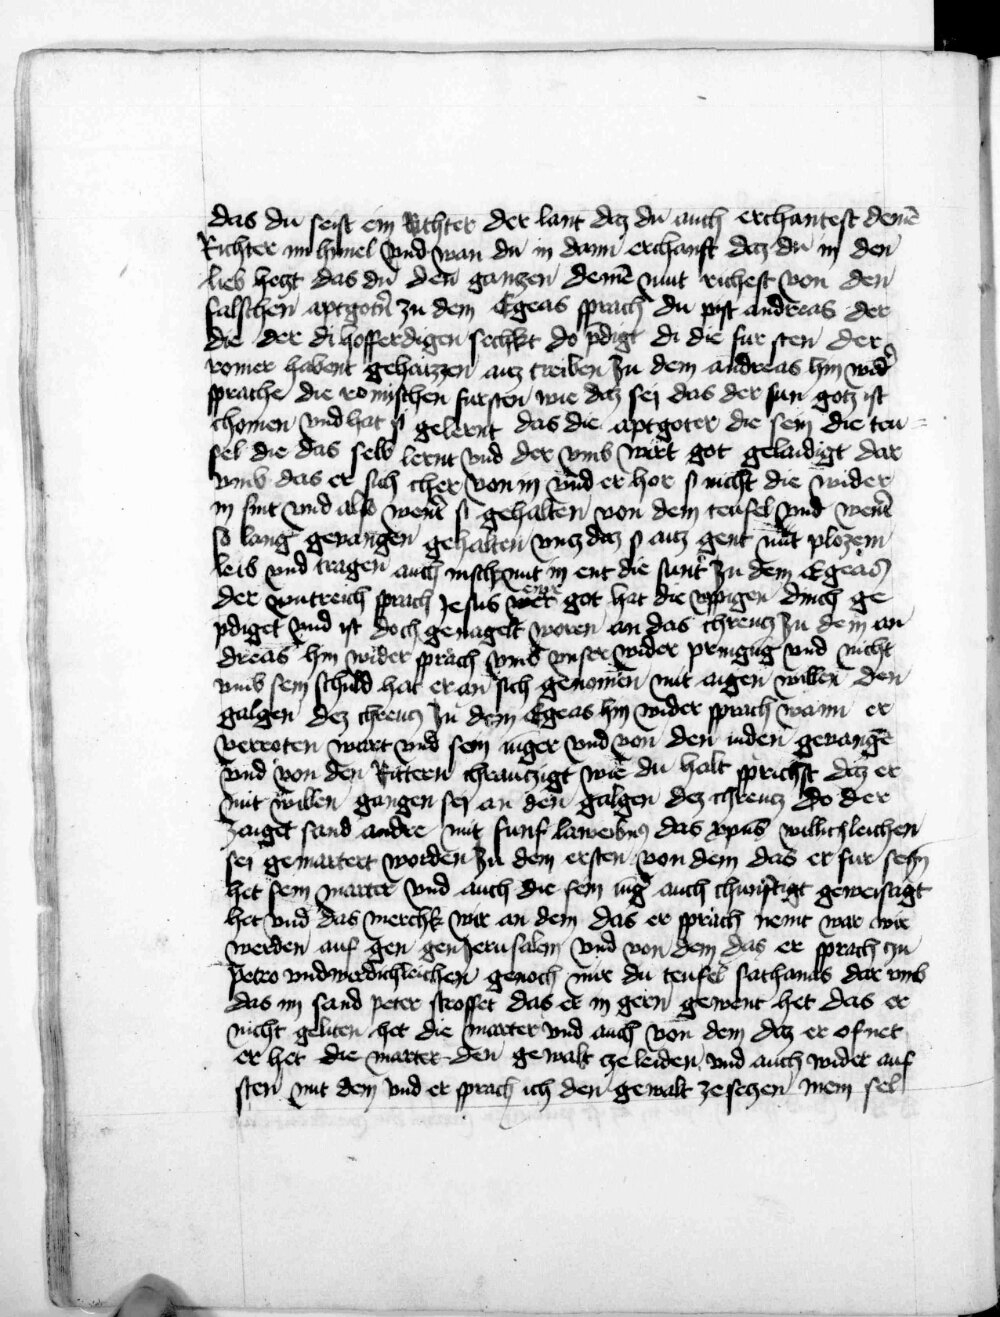 das du seist ein Richter der laut daz du auch erchantest deinē
Richter im himel vnd wan du in dann erchanst daz du in den
lieb hetzt das du den ganzen deinē mut richest von den
falschen aptgotn̄ zu dem Egeas sprach du pist andreas der
die der di hofferdigen sechkt do p̄digt di die fur sten der
romer habent gehaizzen auz treiben Zu dem andreas hin wid̄
sprache die romischen fursten wie daz sei das der sun gotz ist
chomen vnd hat si gelernt das die aptgoter die sein die teu
fel die das selb lernt vnd der vmb wirt got gelaidigt dar
vmb das er sich cher von in vnd er hor si nicht die wider
in sint vnd also wen̄t si gehalten von dem teufel vnd wen̄t
so lang gevangen gehalten vncz daz si auz gent mit plozem
leib vnd tragen auch nischt mit in ent die sunt Zu dem Egeas
der wutreich sprach Jesus ewr got hat die vppigen dinch ge
p̄diget vnd ist doch genagelt woren an das chreucz Zu dem an
dreas hin wider sprach vmb vnser wider pringūg vnd nicht
vmb sein schuld hat er an sich genomen mit aigen willen den
galgen dez chreucz Zu dem Egeas hin wider sprach wann er
verroten wart vnd sein iūger vnd von den iuden gevangē
vnd von den Rittern chrauczigt wie du halt sprichst daz er
mit willen gangen sei an den galgen dez chreucz do der
zaiget sand andre mit funf beweibn̄g das xpūs willichleichen
sei gemartert worden Zu dem ersten von dem das er fur sein
het sein marter vnd auch die sein iūḡ auch chunftigt geweissagt
het vnd das merchk wir an dem das er sprach nemt war wir
werden auf gen gen Jerusalem vnd von dem das er sprach czu
Petro vndwirdichleichen genoch mir du teufel sathanas dar vmb
das in sand peter stroffet das er in gern gewent het das er
nicht geliten het die marter vnd auch von dem daz er ofnet
er het die marter den gewalt cze leiden vnd auch wider auf
sten mit dem vnd er sprach ich den gewalt ze seczen mein sel